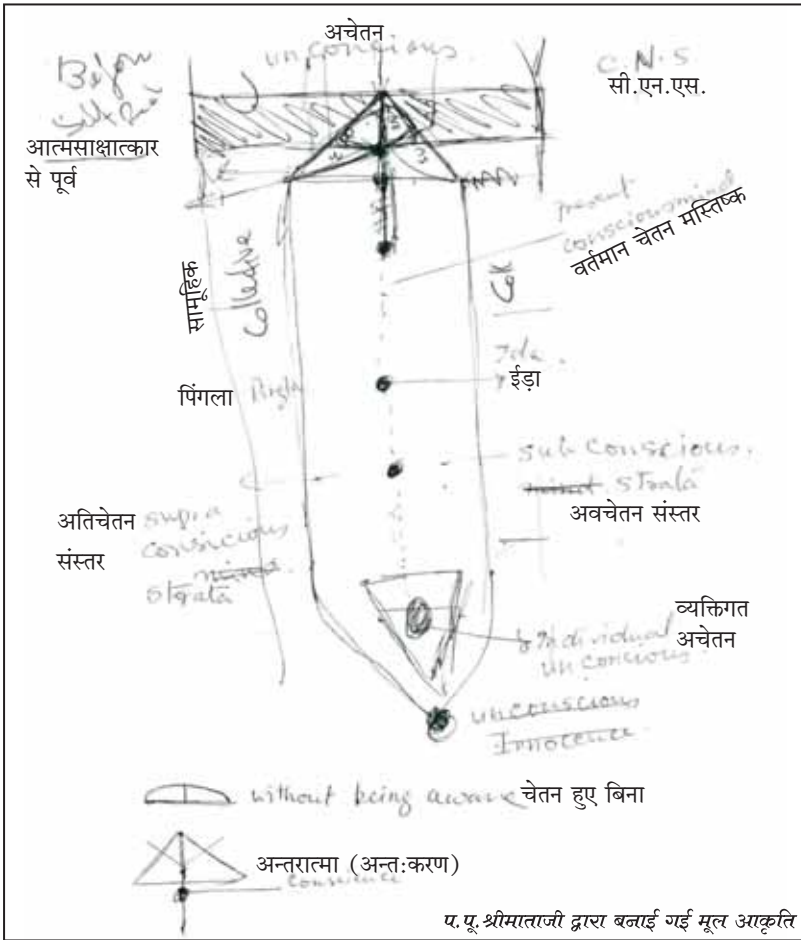 अचेतन
unconcious.
Before
Self Real
आत्मसाक्षात्कार
से पूर्व
C.N.S
सी.एन.एस.
present
consciousmind
वर्तमान चेतन मस्तिष्क
सामूहिक
Collective
पिंगला
Ida.
ईड़ा
sub conscious.
mind strata
अवचेतन संस्तर
अतिचेतन supra
consicious
संस्तर
mind.
strata
व्यक्तिगत
अचेतन
Individual
unconcious.
unconscious
Innocence.
without being aware चेतन हुए बिना
अन्तरात्मा (अन्त:करण)
conscience
प.पू.श्रीमाताजी द्वारा बनाई गई मूल आकृति